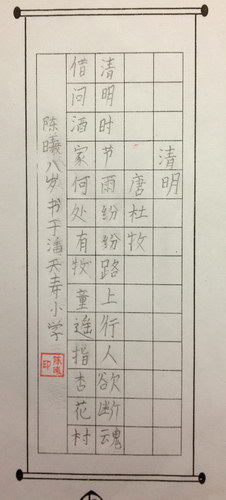 清明
唐杜牧
清明时节雨纷纷路上行人欲断魂
借问酒家何处有牧童遥指杏花村
陈曦八岁书于潘天寿小学